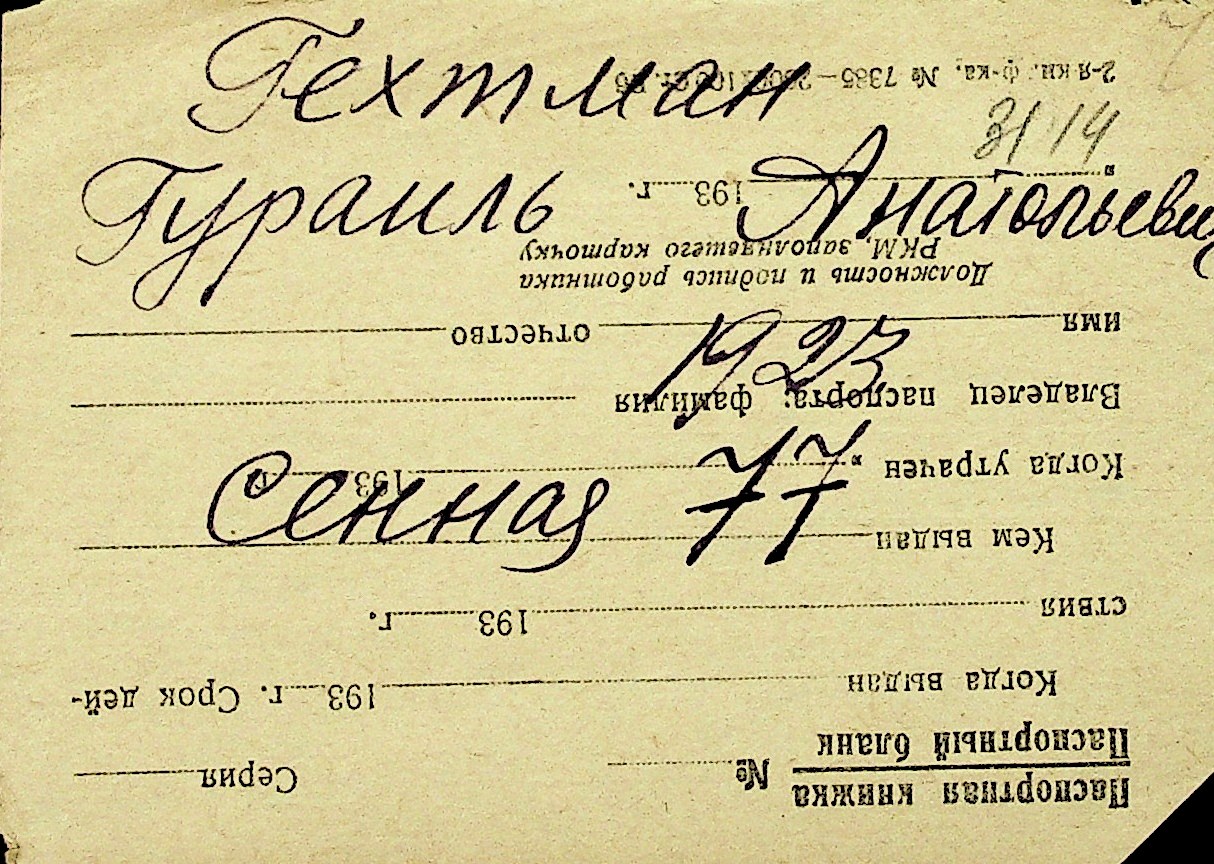 Гехтман
31 14
Гураиль Анатольевич
1923
Сенная 77
Паспортная книжка
Паспортный бланк № Серия
Когда выдан 193 г. Срок дей-
ствия 193 г.
Кем выдан
Когда утрачен „ 193
Владелец паспорта: фамилия
имя отчество
Должность и подпись работника
РКМ, заполняешего карточку
„ 193 г.
2-я кн. ф-ка, № 7385—